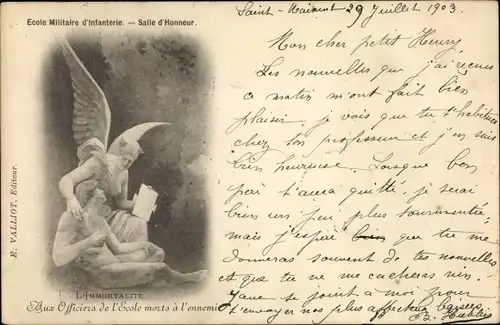 Ecole Militaire d'Infanterie. — Salle d'Honneur.
Saint-Maixent 29 Juillet 1903.
Mon cher petit Henry
Les nouvelles que j'ai reçues
ce matin m'ont fait bien
plaisir. je vois que tu t'habitues
chez ton professeur et j'en suis
bien heureuse. Lorsque bon
père t'aura quitté, je serai
bien un peu plus tourmentée
mais j'espère que tu me
donneras souvent de tes nouvelles
et que tu ne me cacheras rien.
se joint à moi pour
t'envoyer nos plus affectueux baisers.
R. VALLIOT, Editeur.
L'IMMORTALITÉ
Aux Officiers de l'École morts à l'ennemi